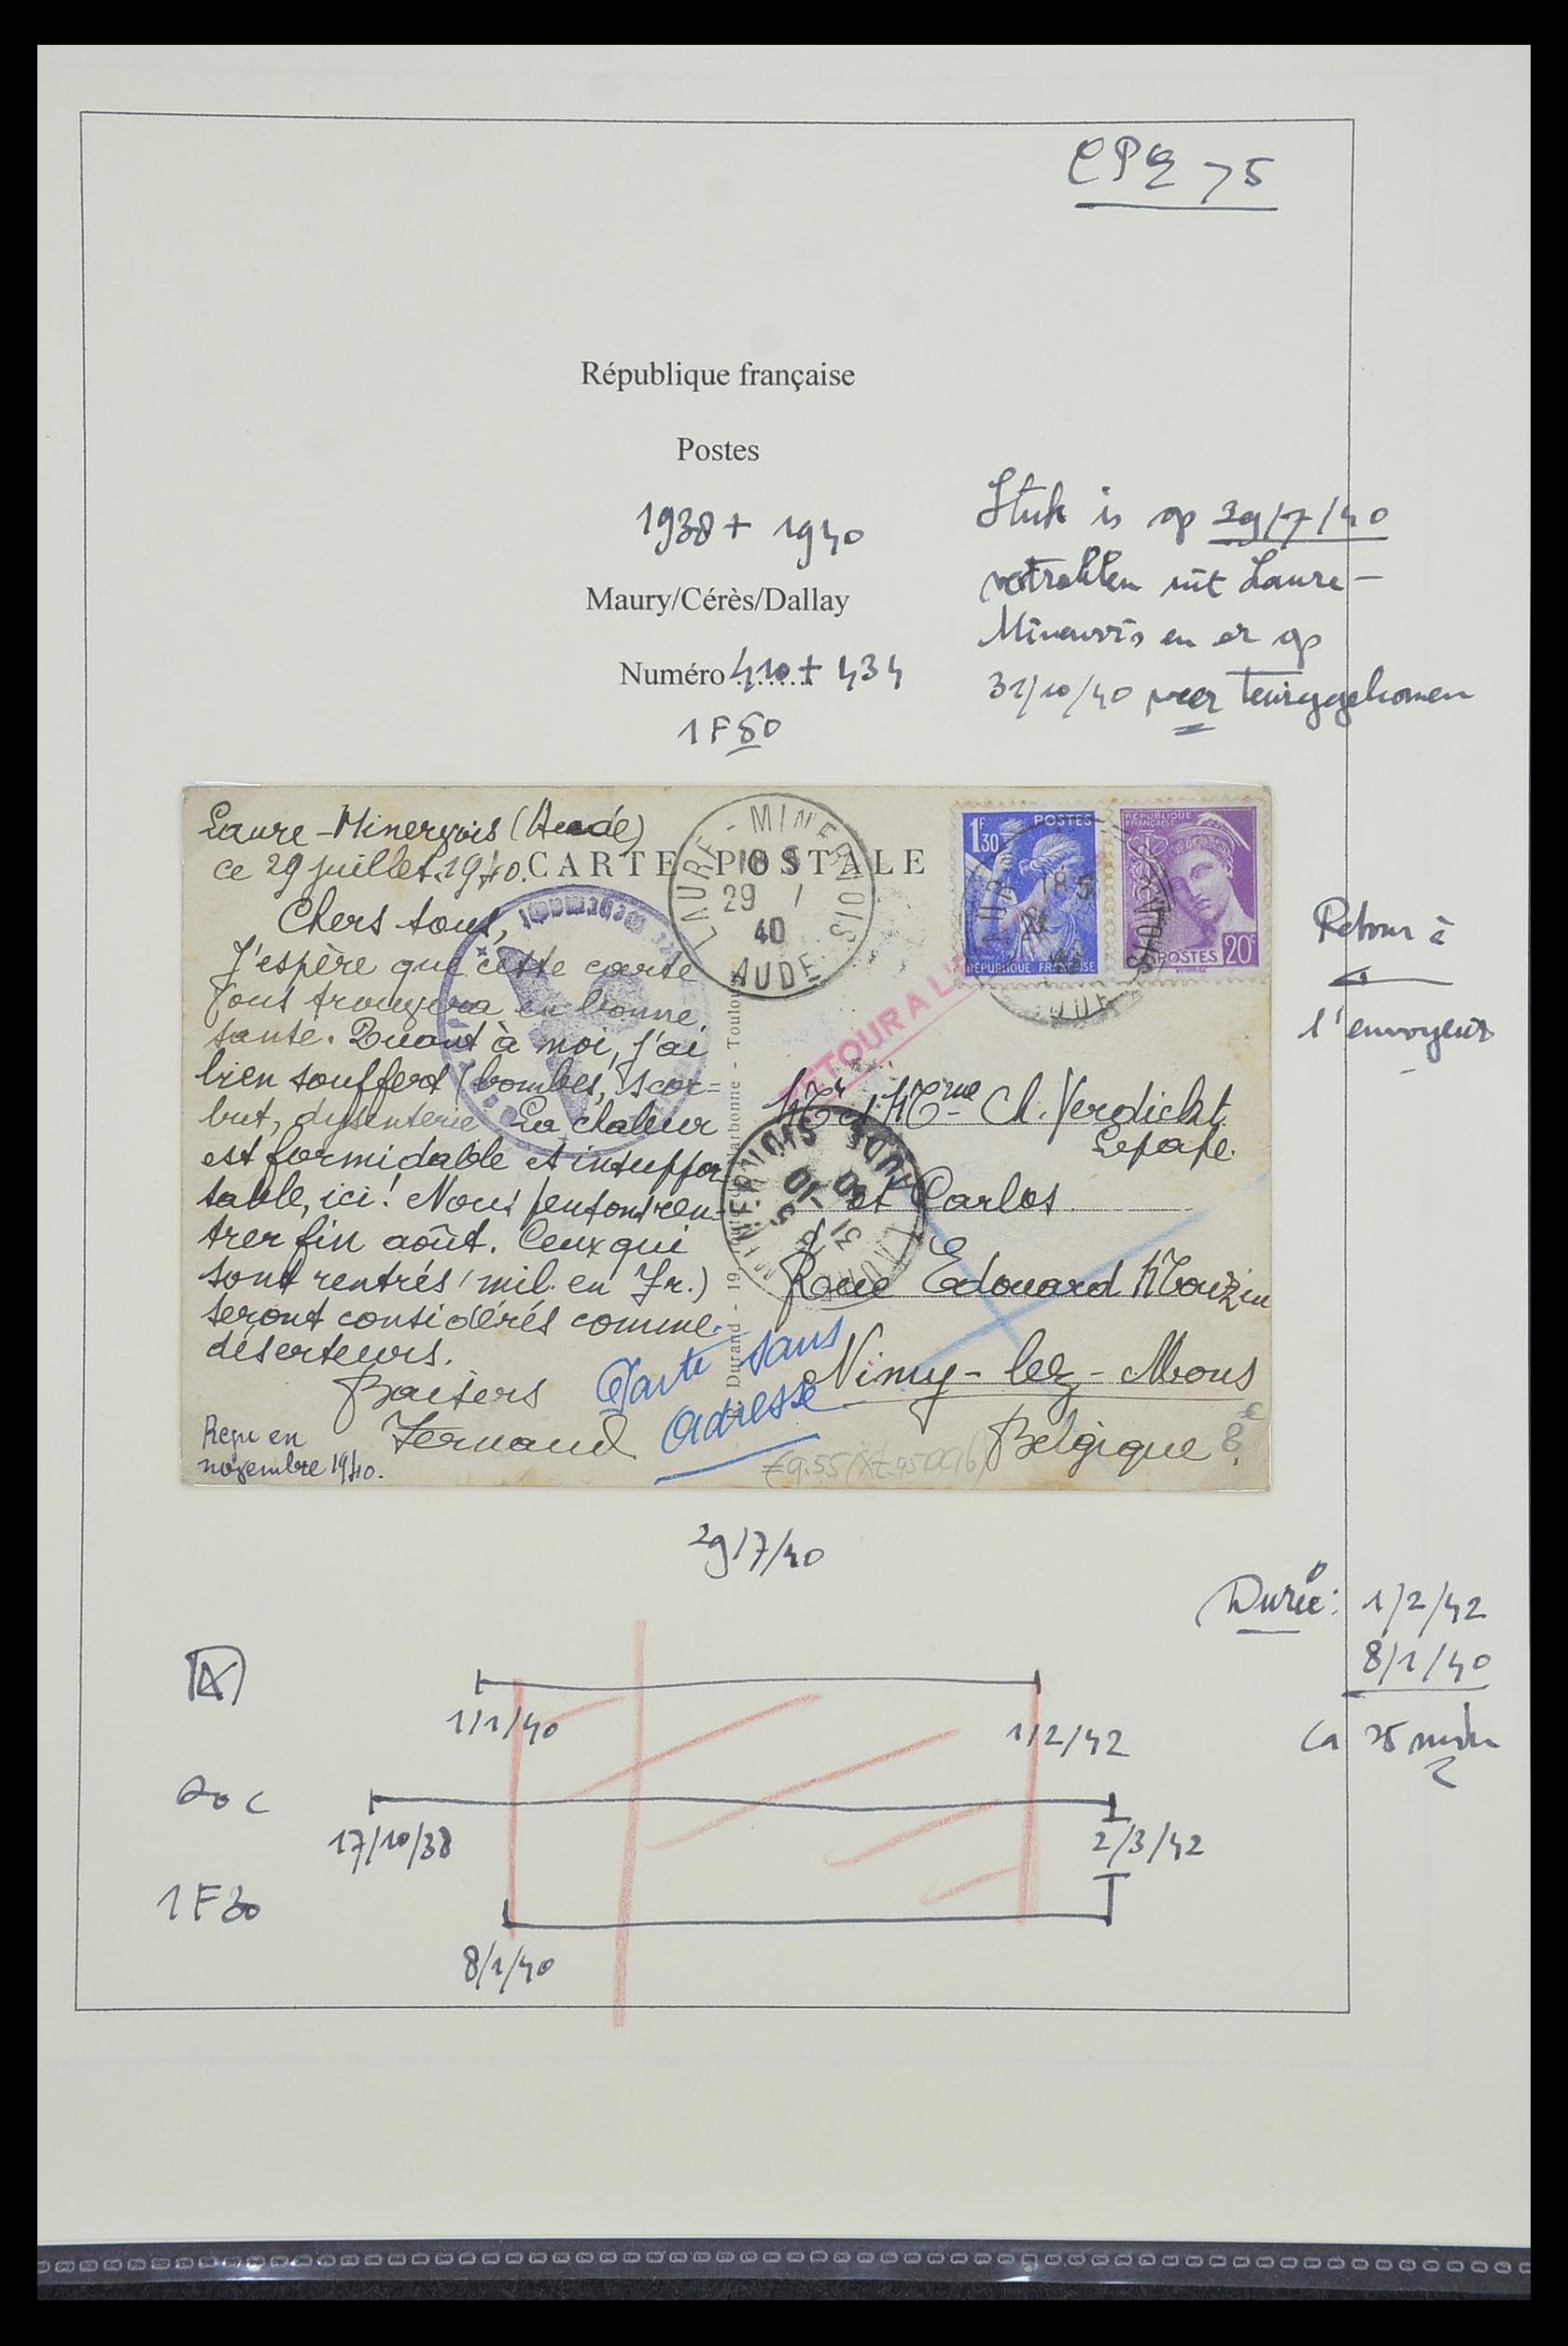 CPE 75
République française
Postes
1938 + 1940
Maury/Cérès/Dallay
Numéro 410 + 434
1F50
Stuk is op 29/7/40
vertrokken uit Laure-
Minervois en er op
31/10/40 weer teruggekomen
Laure-Minervois (Aude)
ce 29 juillet 1940.
CARTE POSTALE
Chers tous,
J'espère que cette carte
vous trouvera en bonne
santé. Quant à moi, j'ai
bien souffert (bombes, scor=
but, dysenterie La chaleur
est formidable et insuppor-
table, ici! Nous pensons ren-
trer fin août. Ceux qui
sont rentrés (mil. en Fr.)
seront considérés comme
déserteurs.
Baisers
Fernand
Reçu en
novembre 1940.
LAURE-MINERVOIS
18 5
29
40
AUDE
1F30
POSTES
RÉPUBLIQUE FRANÇAISE
RÉPUBLIQUE FRANÇAISE
POSTES 20c
RETOUR A L'
Durand - 19, route Narbonne - Toulou
Mr et Mme Ch. Verdickt
Lepape.
et Carlos
Rue Edouard Mouzin
Nimy-lez-Mons
Belgique
MINERVOIS AUDE
31
10
40
Carte sans
adresse
€9.55
Retour à
l'envoyeur
29/7/40
Durée: 1/2/42
8/1/40
ca 25
1/1/40
1/2/42
20c
17/10/38
2/3/42
1F30
8/1/40